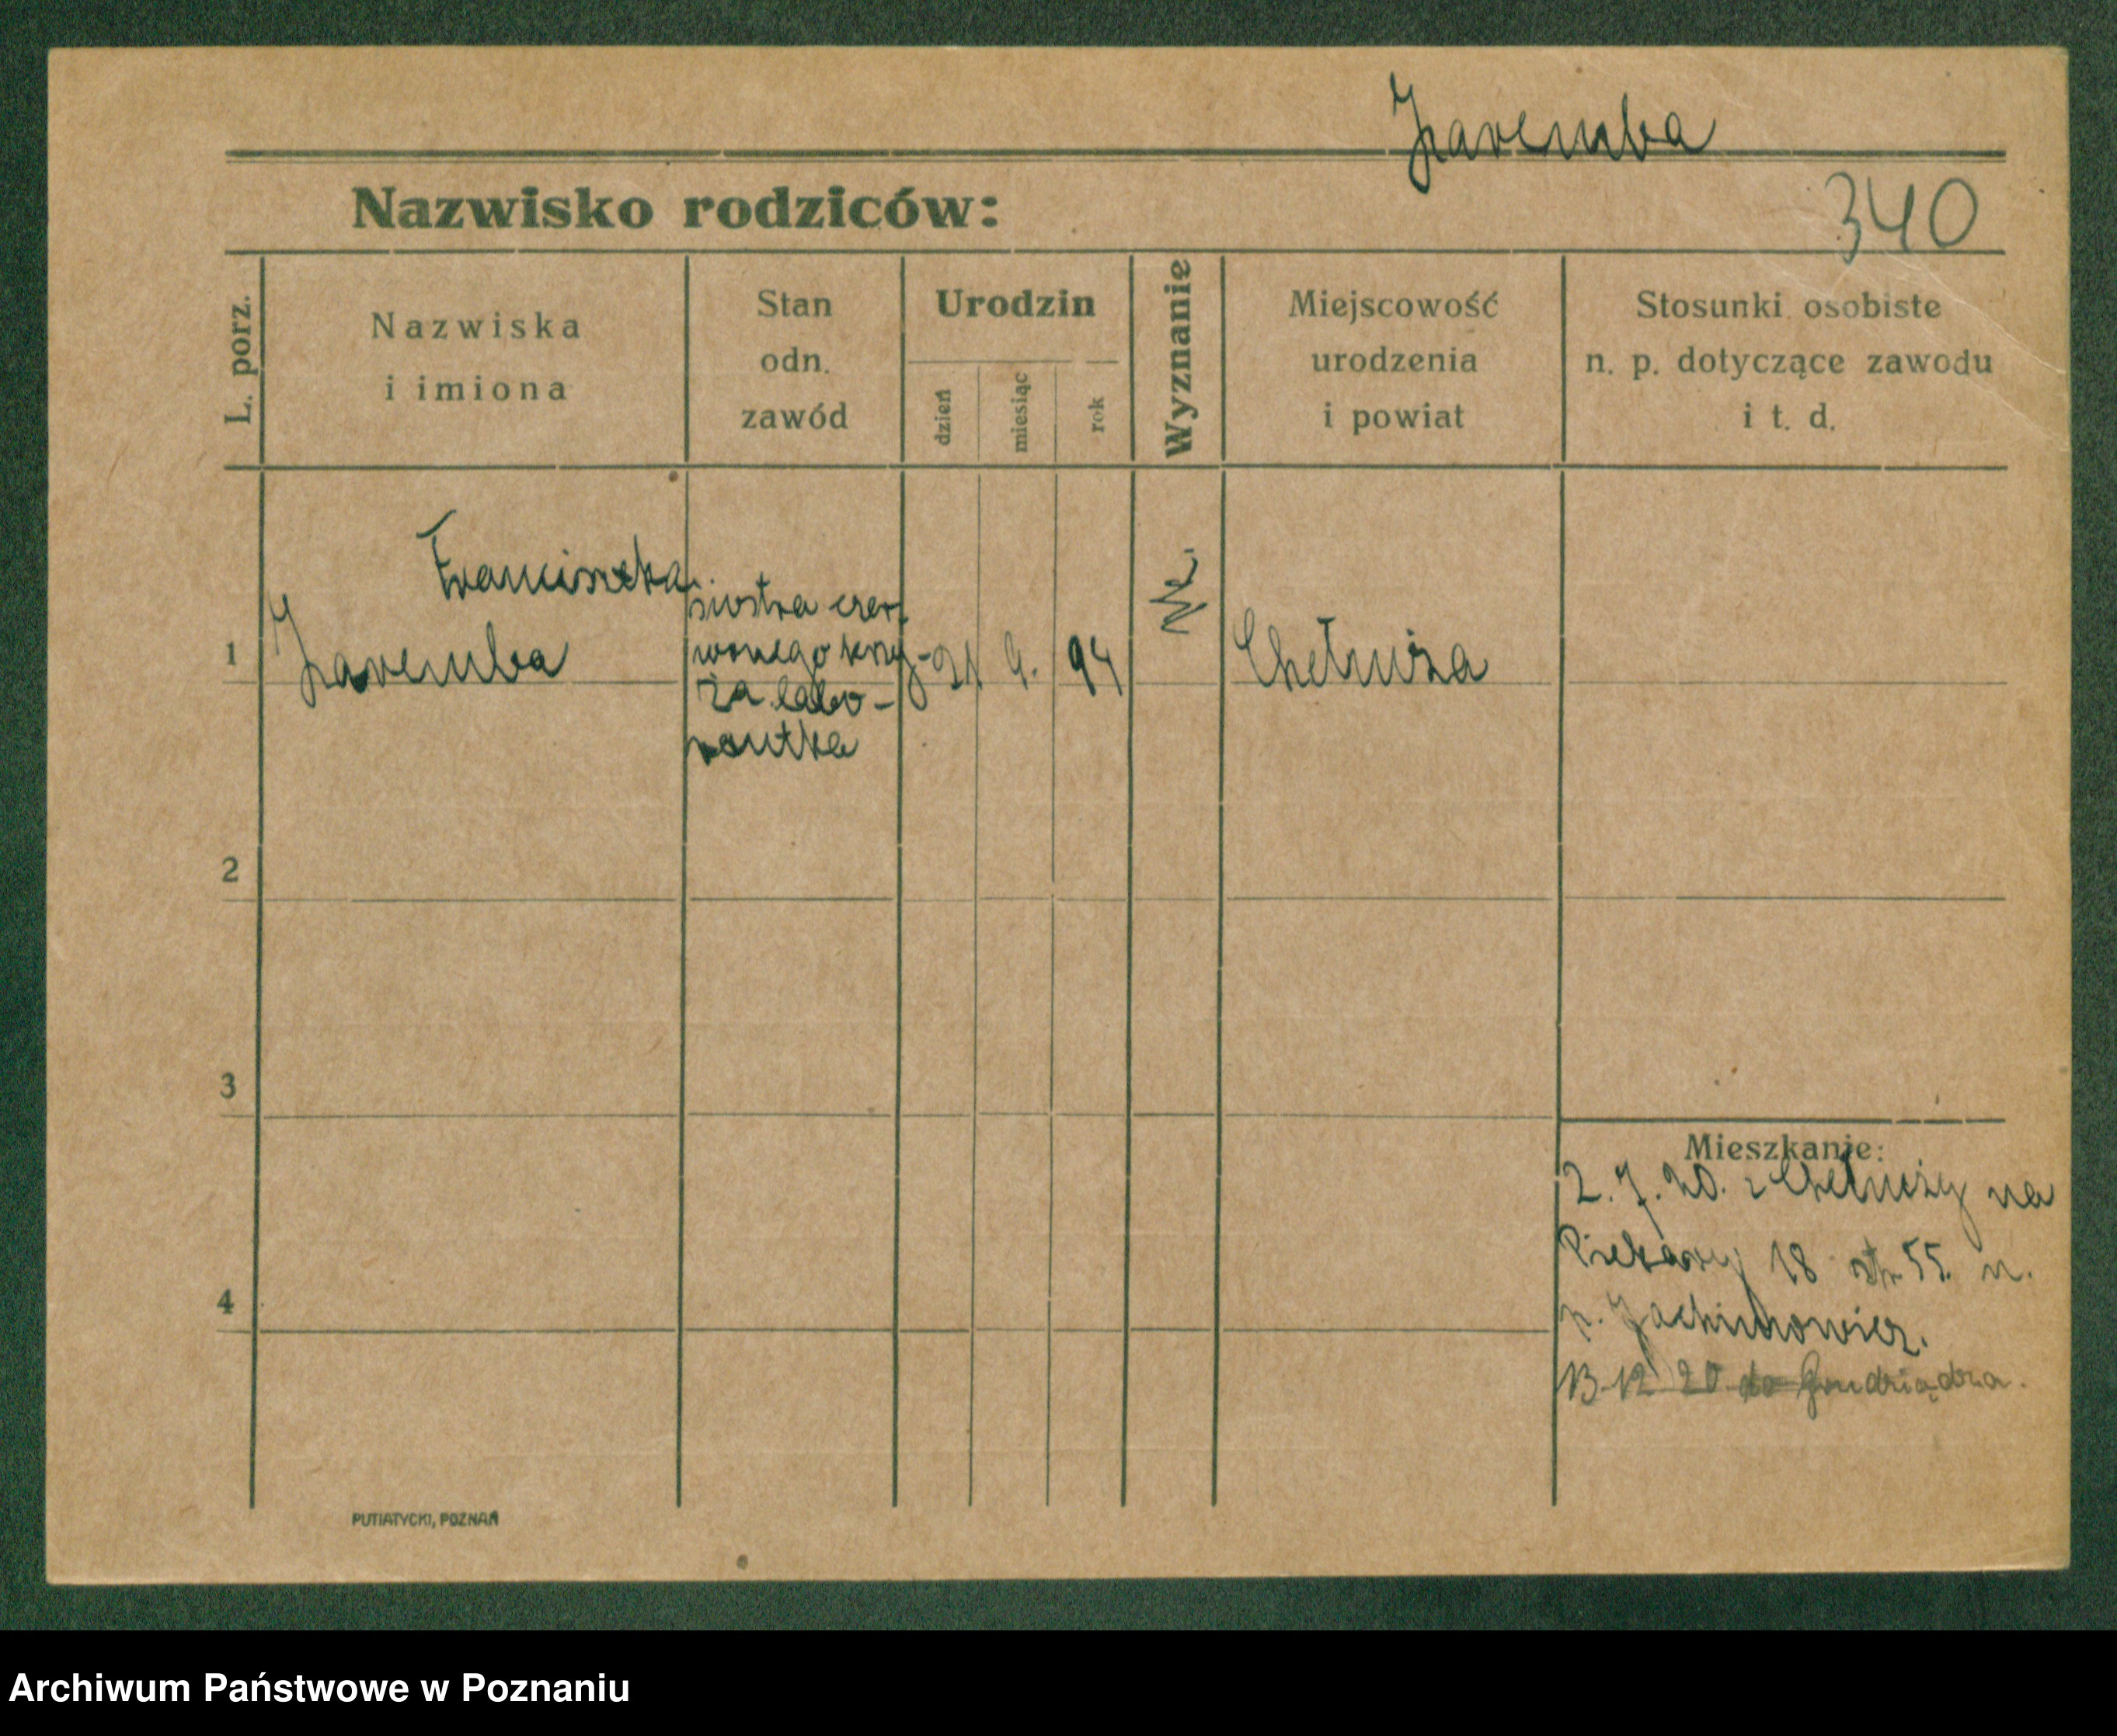 Zaremba
Nazwisko rodziców:
340
L. porz.
Nazwiska
i imiona
Stan
odn.
zawód
Urodzin
dzień
miesiąc
rok
Wyznanie
Miejscowość
urodzenia
i powiat
Stosunki osobiste
n. p. dotyczące zawodu
i t. d.
1
Franciszka
Zaremba
siostra czer-
wonego krzy-
ża labo-
rantka
21
9.
94
Chełmża
2
3
4
Mieszkanie:
2. 7. 20. z Chełmży na
Piekary 18 55. u.
p. Jachimowicz.
13-12 20 do Grudziądza.
PUTIATYCKI, POZNAŃ
Archiwum Państwowe w Poznaniu